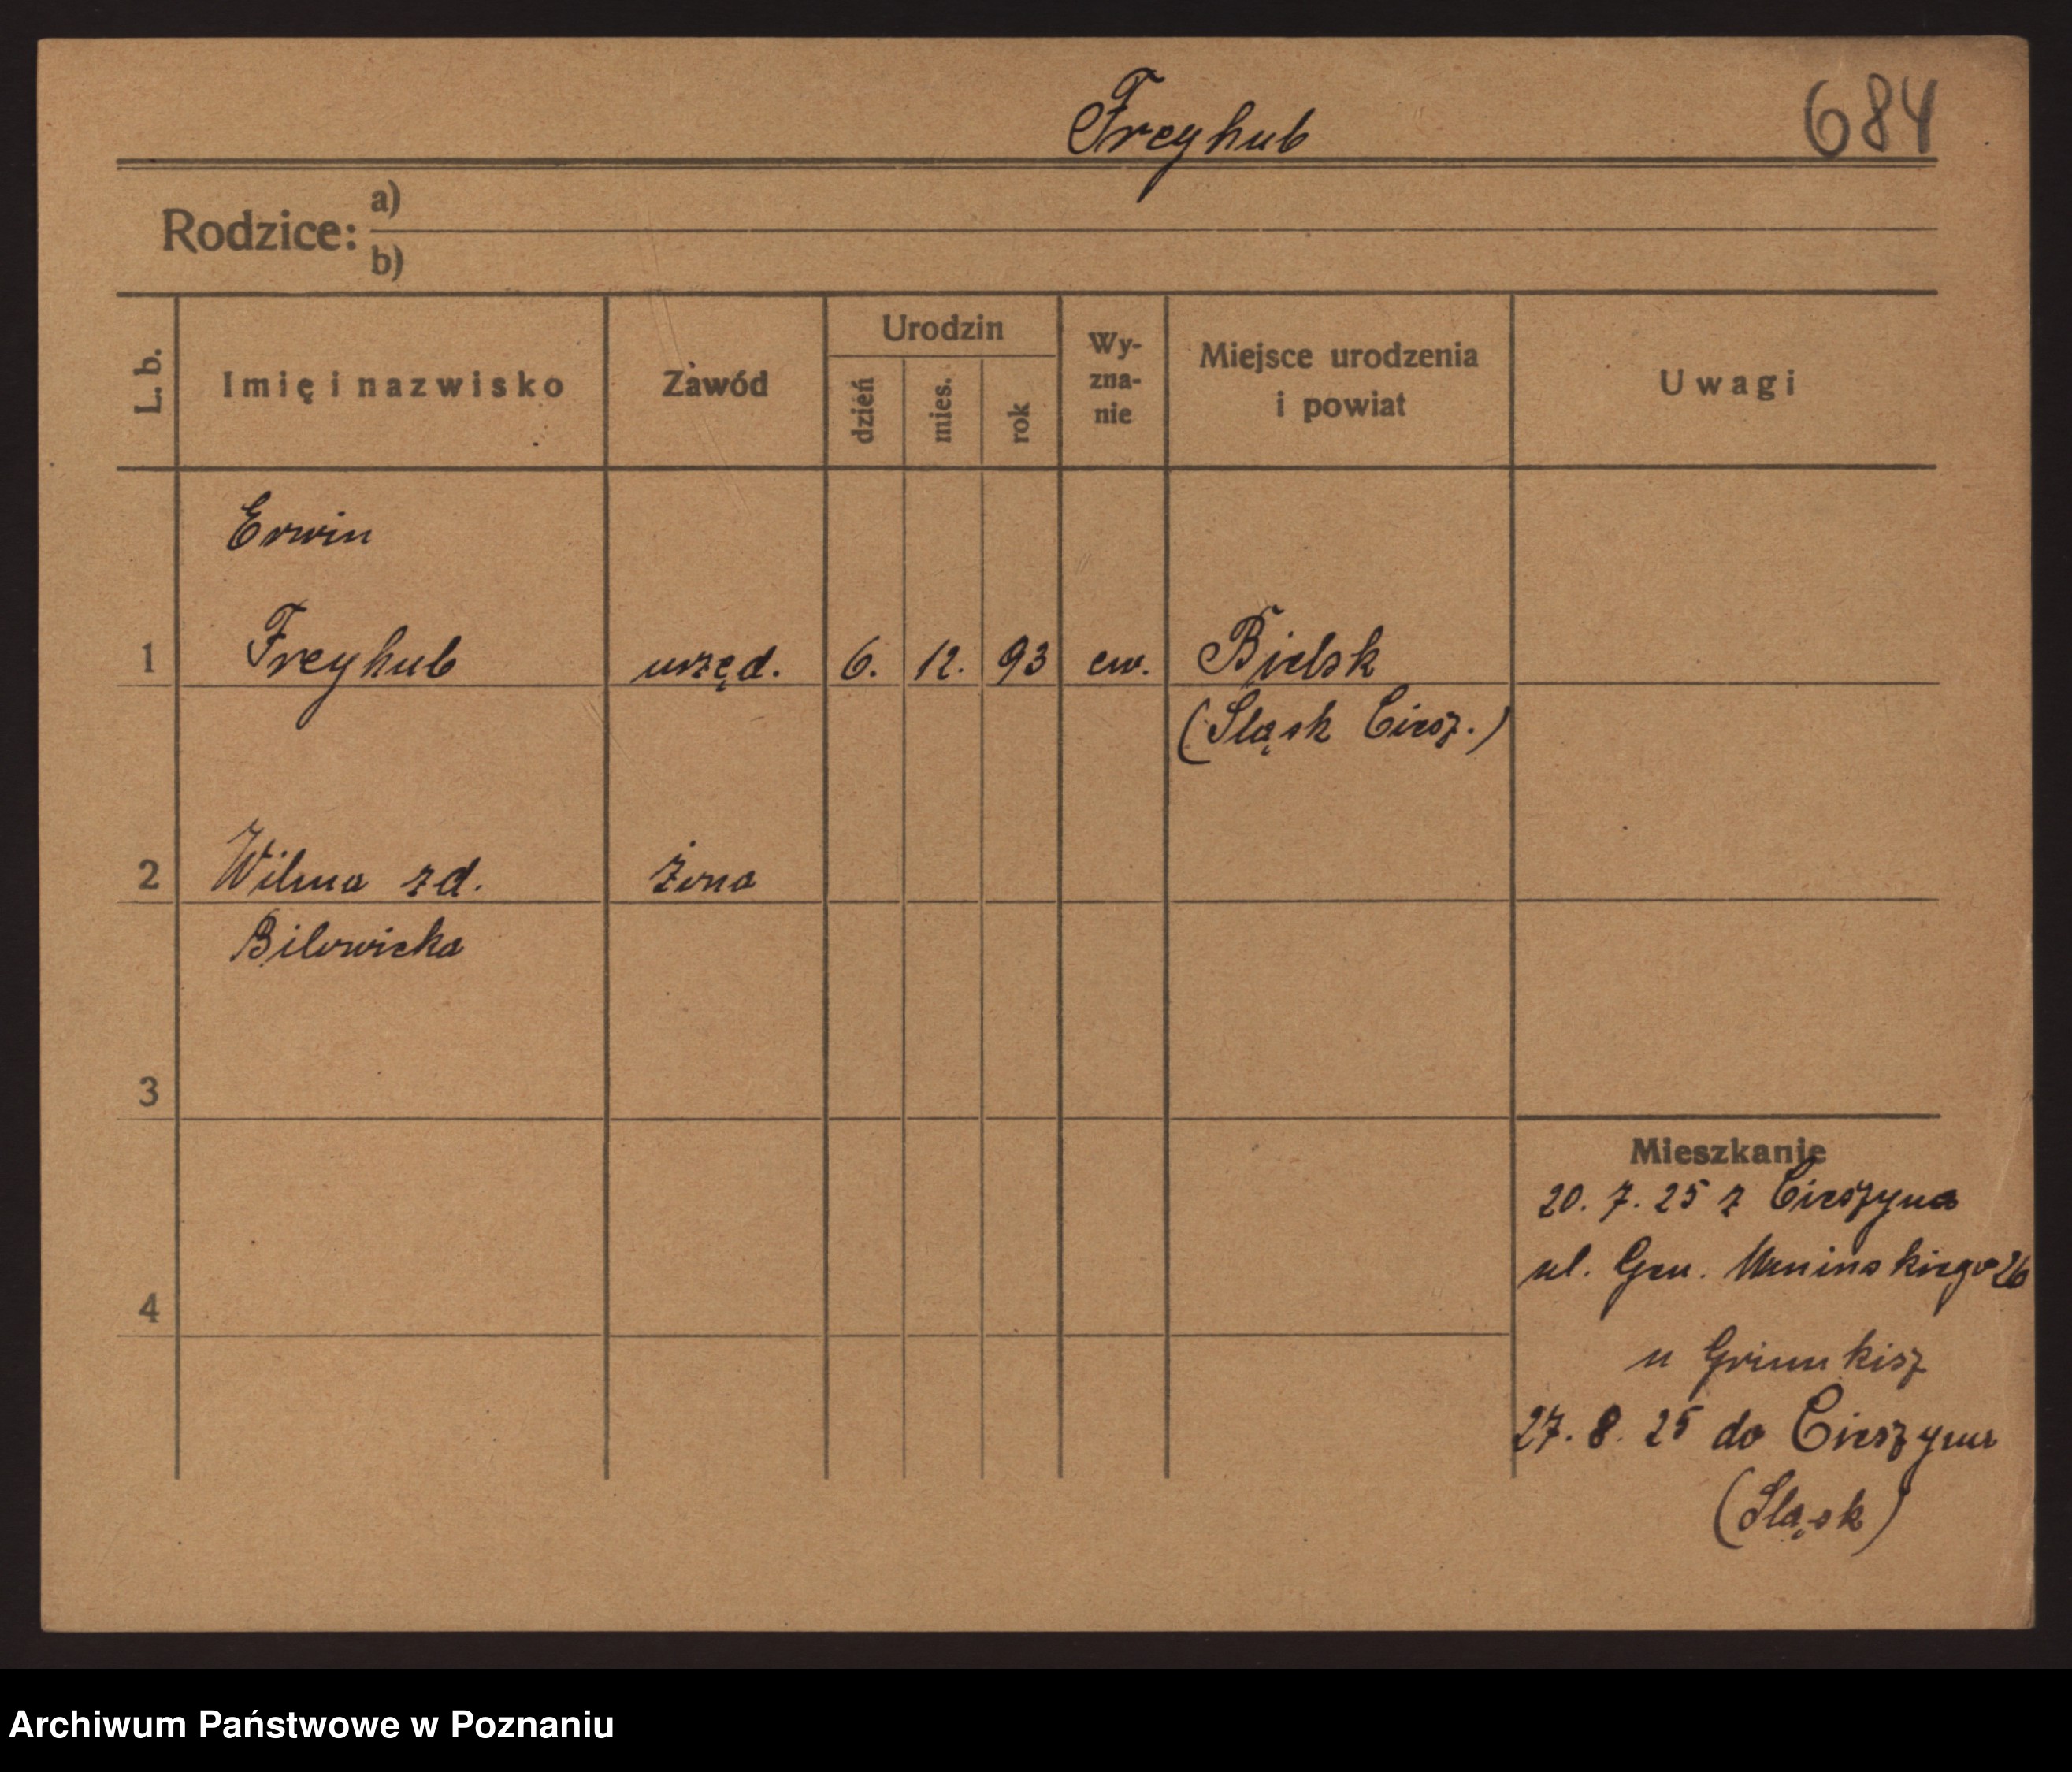 Freyhub 684
Rodzice: a)
b)
L. b. Imię i nazwisko Zawód Urodzin dzień mies. rok Wy-zna-nie Miejsce urodzenia i powiat Uwagi
Erwin
1 Freyhub urzęd. 6. 12. 93 ew. Bielsk
(Śląsk Ciesz.)
2 Wilma zd. żona
Bilowicka
3
Mieszkanie
20. 7. 25 z Cieszyna
ul. Gen. 26
4
u
27. 8. 25 do Cieszyna
(Śląsk)
Archiwum Państwowe w Poznaniu